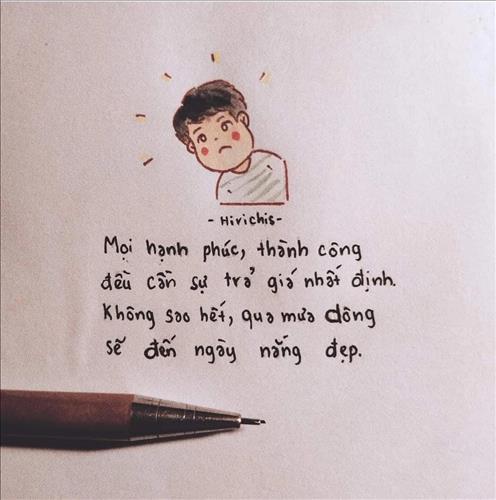 - Hirichis-
Mọi hạnh phúc, thành công
đều cần sự trả giá nhất định.
Không sao hết, qua mưa dông
sẽ đến ngày nắng đẹp.